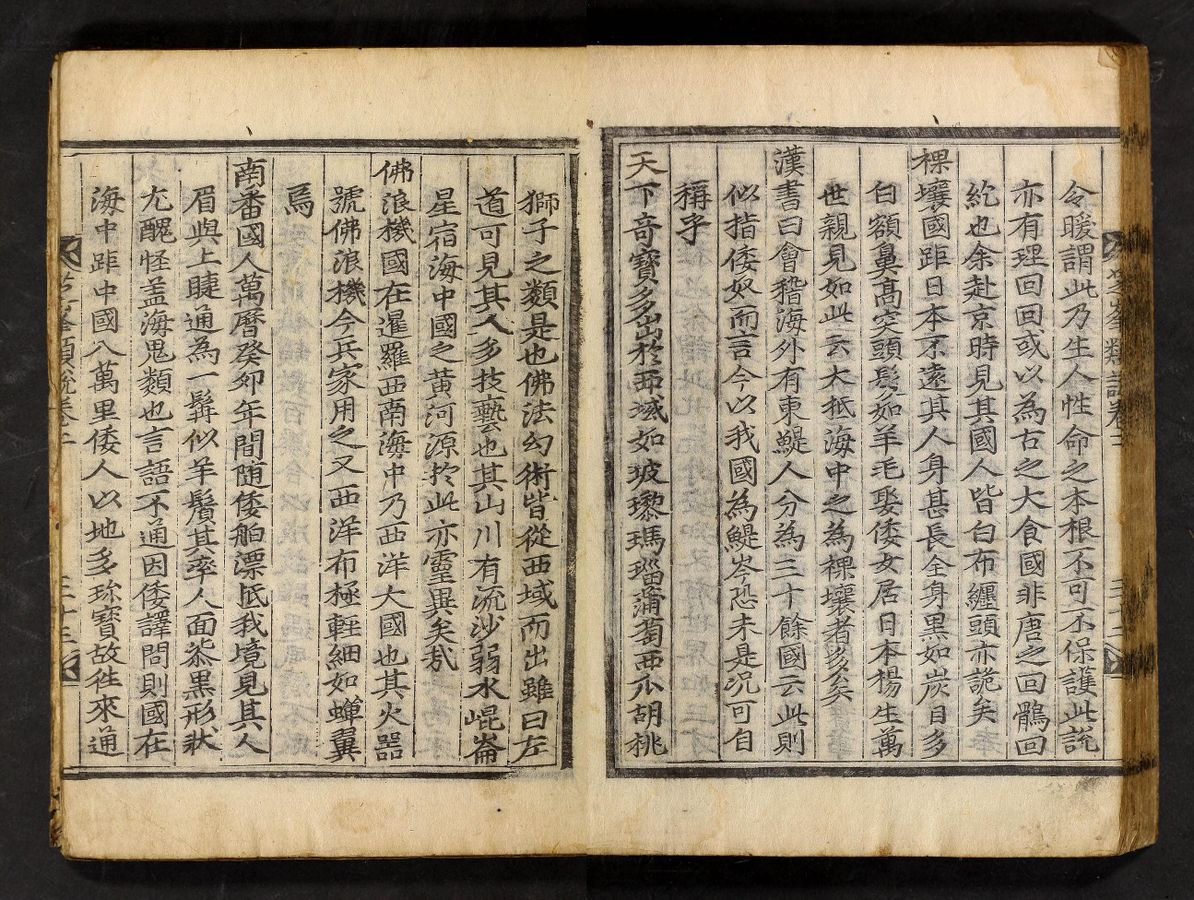 令暖謂此乃生人性命之本根不可不保護此説
亦有理回回或以為古之大食國非唐之回鶻回
紇也余赴京時見其國人皆白布纏頭亦詭矣
䅽壤國距日本不遠其人身甚長全身黑如炭目多
白額鼻髙突頭髮如羊毛娶倭女居日本楊生萬
世親見如此云大抵海中之為裸壤者多矣
漢書曰會稽海外有東鯷人分為三十餘國云此則
似指倭奴而言今以我國為鯷岑恐未是况可自
稱乎
天下奇寶多出於西域如玻瓈瑪瑙蒲萄西瓜胡桃
獅子之類是也佛法幻術皆從西域而出雖曰左
道可見其人多技藝也其山川有流沙弱水崐崙
星宿海中國之黄河源於此亦靈異矣哉
佛浪機國在暹羅西南海中乃西洋大國也其火器
號佛浪機今兵家用之又西洋布極輕細如蟬翼
焉
南番國人萬曆癸卯年間随倭舶漂抵我境見其人
眉與上睫通為一髯似羊鬚其率人面漆黒形狀
尤醜怪盖海鬼類也言語不通因倭譯問則國在
海中距中國八萬里倭人以地多珎寶故徃來通
芝峯類説卷二
三十三